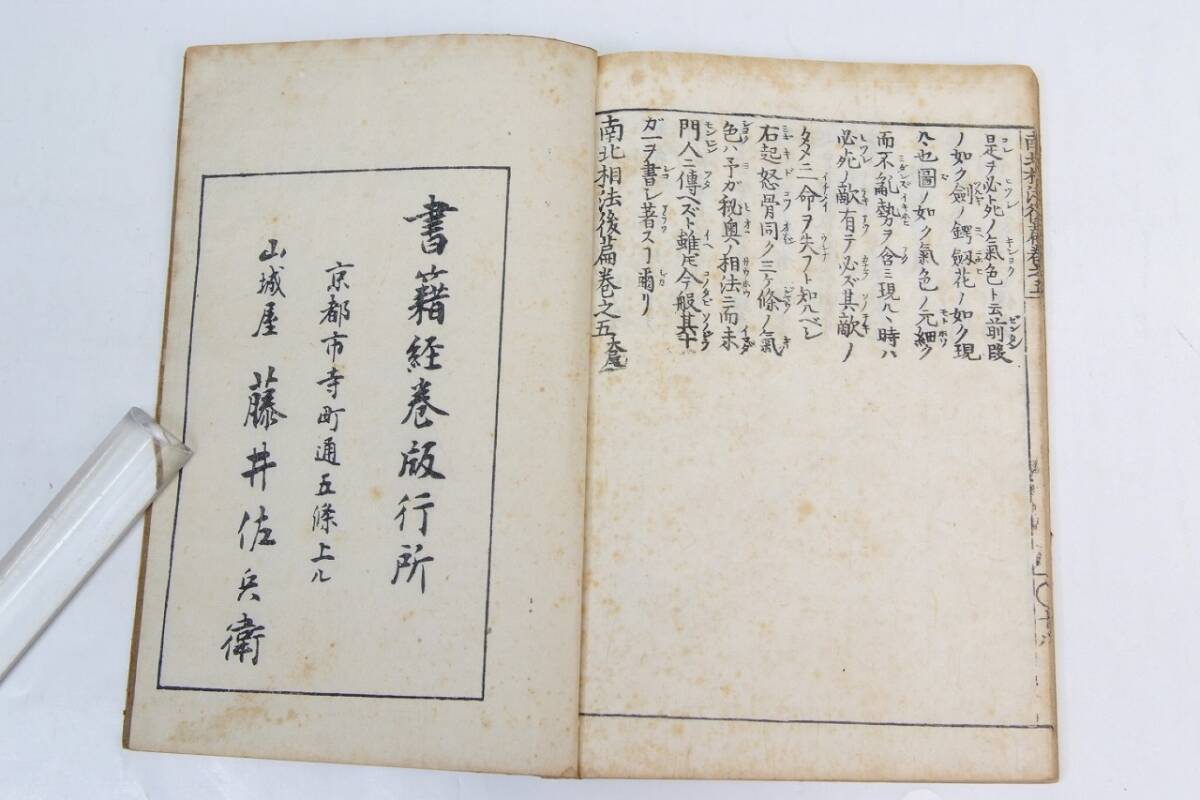 是ヲ必死ノ氣色ト云前段
ノ如ク劍ノ鍔劔花ノ如ク現
ハル也圖ノ如ク氣色ノ元細ク
而不亂勢ヲ含ミ現ルヽ時ハ
必死ノ敵有テ必ズ其敵ノ
タメニ一命ヲ失フト知ルベシ
右起怒骨同ク三ケ條ノ氣
色ハ予ガ秘奥ノ相法ニ而未
門人ニ傳ヘズト雖𪜈今般其十
ガ一ヲ書シ著スヿ爾リ
南北相法後篇巻之五大尾
書籍経巻版行所
京都市寺町通五條上ル
山城屋 藤井佐兵衛